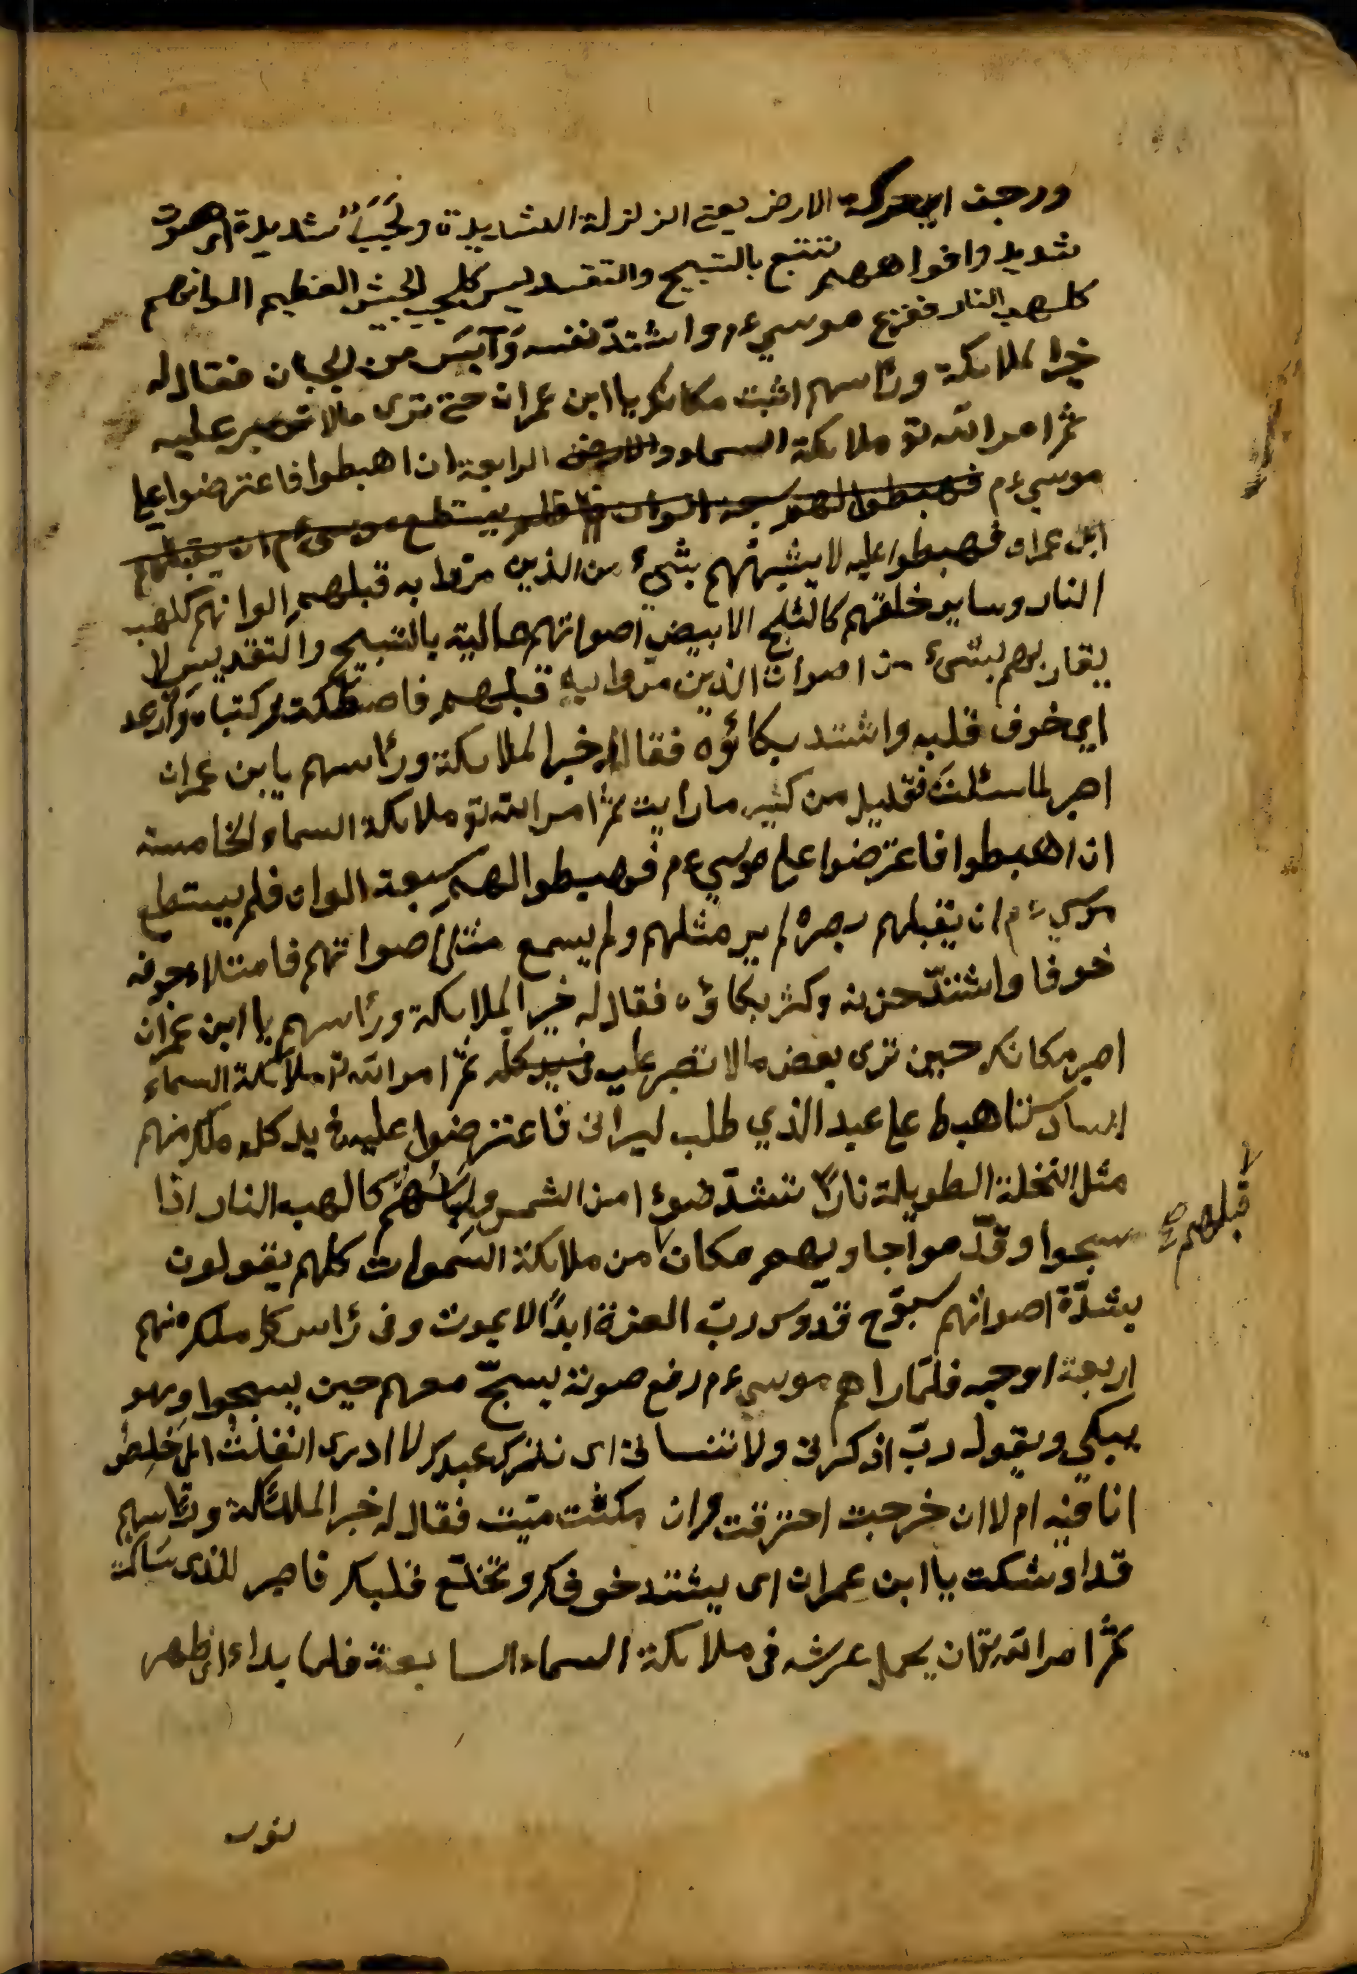 ورجف اي حركة الارض يعني الزلزلة الشديدة ولجب شديدة اي صوت
شديد وافواههم تنبع بالتسبيح والتقديس كلجب الجيش العظيم الوانهم
كلهب النار ففزع موسي ءم واشتدّ نفسه وآيس من الحياة فقال له
خير الملائكة ورأسهم اثبت مكانك يا ابن عمران حتى ترى مالا تصبر عليه
ثم امر الله تع ملائكة السماء الرابعة ان اهبطوا فاعترضوا علي
موسي ءم فهبطوا لهم سبعة الوان فلم يستطع موسى ءم ان يقبلهم
ابن عمران فهبطوا عليه لا يشبههم بشيء من الذين مروا به قبلهم الوانهم كلهب
النار وساير خلقهم كالثلج الابيض اصواتهم عالية بالتسبيح والتقديس لا
يقاربهم بشيء من اصوات الذين مروا به قبلهم فاصطكت ركبتاه وارعد
اي خوف قلبه واشتد بكائوه فقال له خير الملائكة ورأسهم يا بن عمران
اصبر لما سئلت فقليل من كثير ما رايت ثم امر الله تع ملائكة السماء الخامسة
ان اهبطوا فاعترضوا علي موسي ءم فهبطوا لهم سبعة الوان فلم يستطع
موسي ءم ان يقبلهم بصره لم ير مثلهم ولم يسمع مثل اصواتهم فامتلاء جوفه
خوفا واشتدّ حزنه وكثر بكاؤه فقال له خير الملائكة ورأسهم يا ابن عمران
اصبر مكانك حين ترى بعض ما لا تصبر عليه ثم امر الله تع ملائكة السماء
السادستا اهبط علي عبد الذي طلب ليراني فاعترضوا عليه في يد كل ملك منهم
مثل النخلة الطويلة نارا تشدّ ضوءا من الشمس ولباسهم كالهب النار اذا
سبحوا وقدّسوا جاوبهم من كان من ملائكة السموات كلهم يقولون
قبلهم صح
بشدّة اصواتهم سبوّح قدّوس ربّ العزة ابداً لا يموت وفي رأس كل ملك منهم
اربعة اوجه فلمّا راهم موسي ءم رفع صوته يسبحّ معهم حين يسبحوا وهو
يبكي ويقول ربّ اذكرني ولا تنساني عبدك لا ادرى انفلت اي خلص
انا فيه ام لا ان خرجت احترقت وان مكثت ميّت فقال له خير الملئكة ورأسهم
قد اوشكت يا ابن عمران اي يشتد خوفك وتخلّع قلبك فاصبر للذي سألت
ثم امر الله تع ان يحمل عرشه في ملائكة السماء السابعة فلما بداء اي ظهر
نور